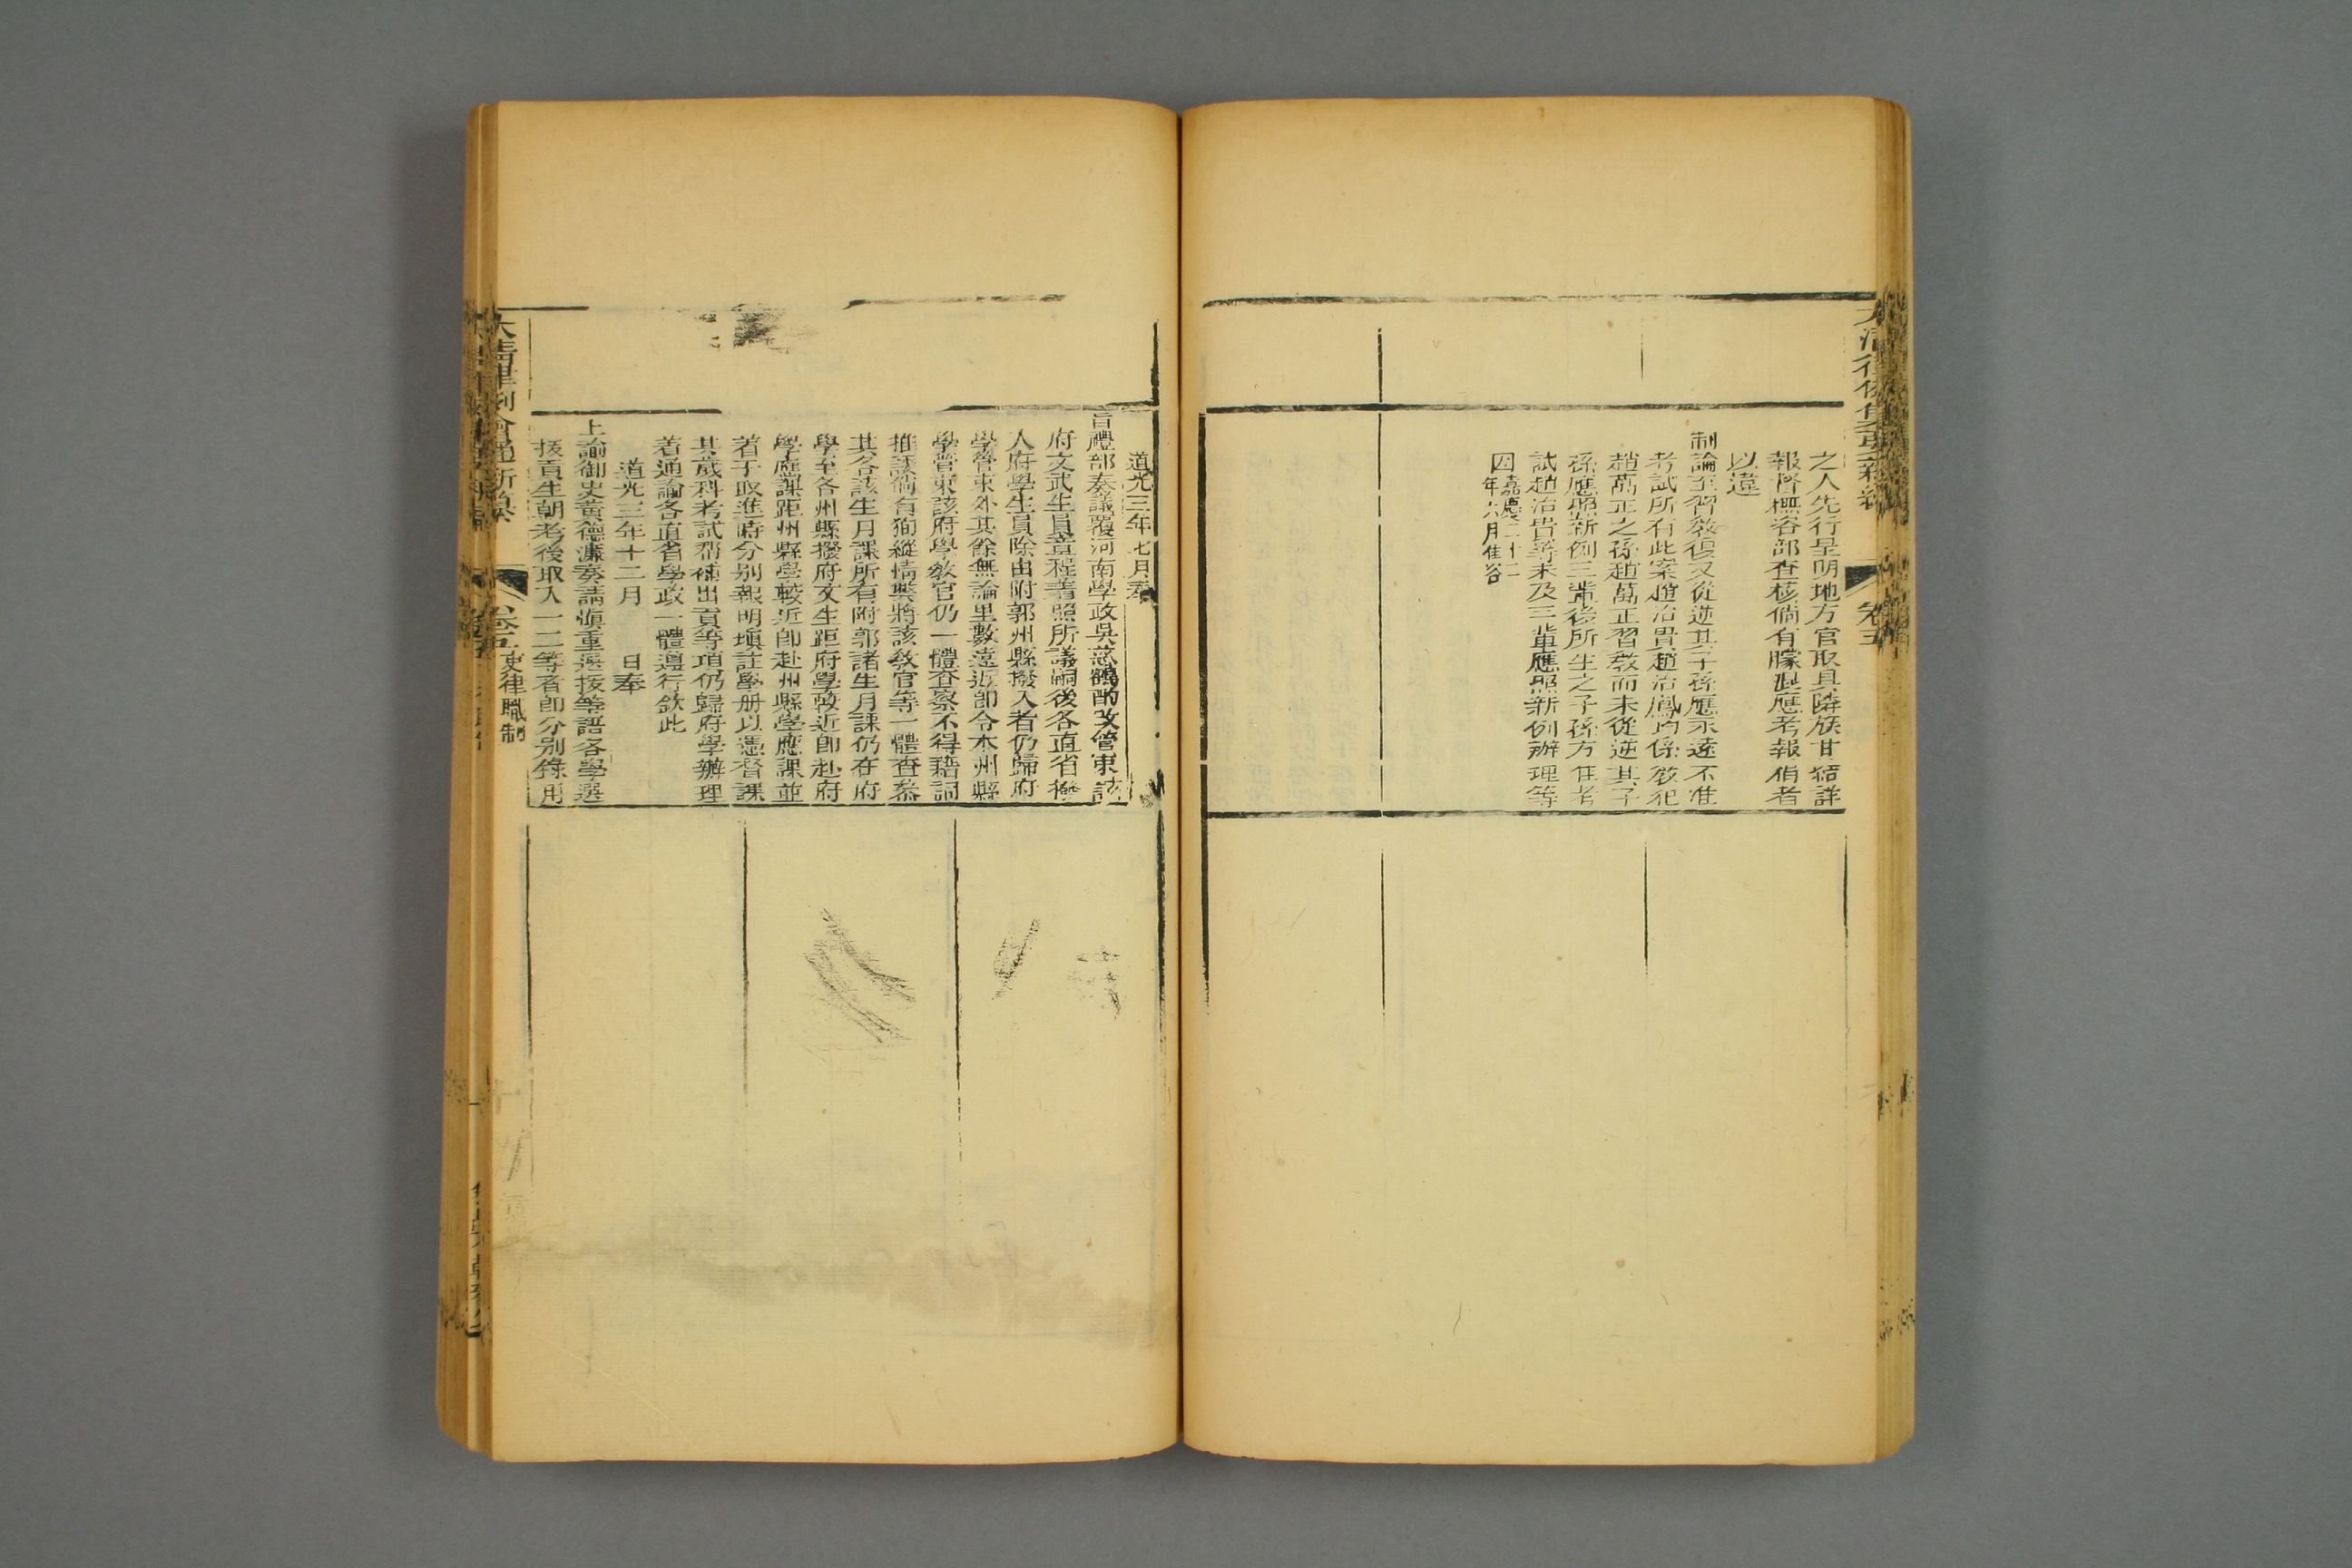 之人先行呈明地方官取具隣族甘結詳
報督撫咨部查核倘有朦混應考報捐者
以違
制論至習教復又從逆其子孫應永遠不准
考試所有此案趙治貴趙治鳳均係教犯
趙萬正之孫趙萬正習教而未從逆其子
孫應照新例三輩後所生之子孫方准考
試趙治貴等未及三輩應照新例辦理等
因嘉慶二十二年六月准咨
道光三年七月奉
旨禮部奏議覆河南學政吳慈鶴酌改管束
府文武生員章程著照所議嗣後各直省
人府學生員除由附郭州縣撥入者仍歸府
學管束外其餘無論里數遠近卽令本州縣
學管束該府學教官仍一體查察不得藉詞
推諉倘有狥縱情獘將該教官等一體查叅
其各該生月課所有附郭諸生月課仍在府
學至各州縣撥府文生距府學較近卽赴府
學應課距州縣學較近卽赴州縣學應課並
着于取進時分别報明塡註學册以憑督課
其歲科考試幫補出貢等項仍歸府學辦理
着通諭各直省學政一體遵行欽此
道光三年十二月 日奉
上諭御史黃德濂奏請愼重選拔等語各學選
拔貢生朝考後取入一二等者卽分别錄用
大清律例會通新纂 卷五 吏律職制